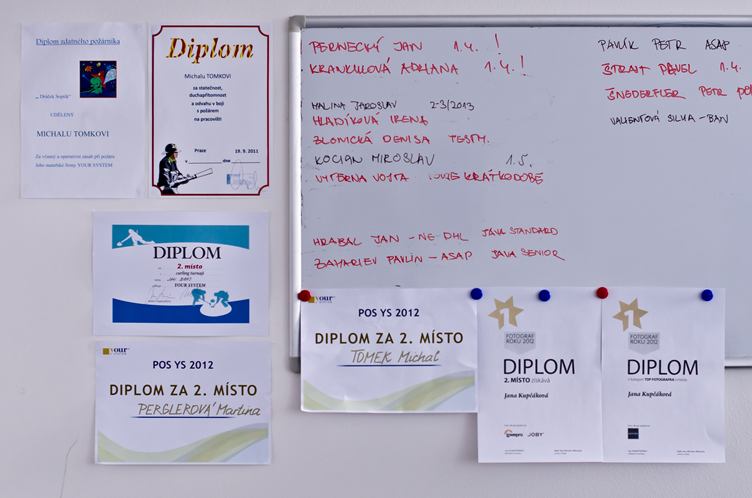 Diplom zdatného požárníka
„Dráček Soptík"
UDĚLENÝ
MICHALU TOMKOVI
Za včasný a operativní zásah při požáru
loho mateřské firmy YOUR SYSTEM
Diplom
Michalu TOMKOVI
za statečnost,
duchapřítomnost
a odvahu v boji
s požárem
na pracovišti
Praze 19. 9. 2011
v dne
DIPLOM
2. místo
curling turnaji
YOUR SYSTEM
your
POS YS 2012
DIPLOM ZA 2. MÍSTO
PERGLEROVÁ Martina
PERNECKÝ JAN 1.4. !
KRANKULOVÁ ADRIANA 1.4. !
MALINA JAROSLAV 2-3/2013
HLADÍKOVÁ IRENA
ZLOMICKÁ DENISA TESTM.
KOCIAN MIROSLAV 1.5.
VYTERNA VOJTA KRÁTKODOBĚ
HRABAL JAN - NE DHL JAVA STANDARD
ZAHARIEV PAVLÍN - ASAP JAVA SENIOR
PAVLÍK PETR ASAP
ŠTRAIT PAVEL 1.4.
ŠNEDERFLER PETR
VALENTOVÁ SILVIA - BAN
your
POS YS 2012
DIPLOM ZA 2. MÍSTO
TOMEK Michal
FOTOGRAF
ROKU 2012
DIPLOM
2. MÍSTO získává
Jana Kupčáková
JOBY
FOTOGRAF
ROKU 2012
DIPLOM
v kategorii TOP FOTOGRAFKA
Jana Kupčáková